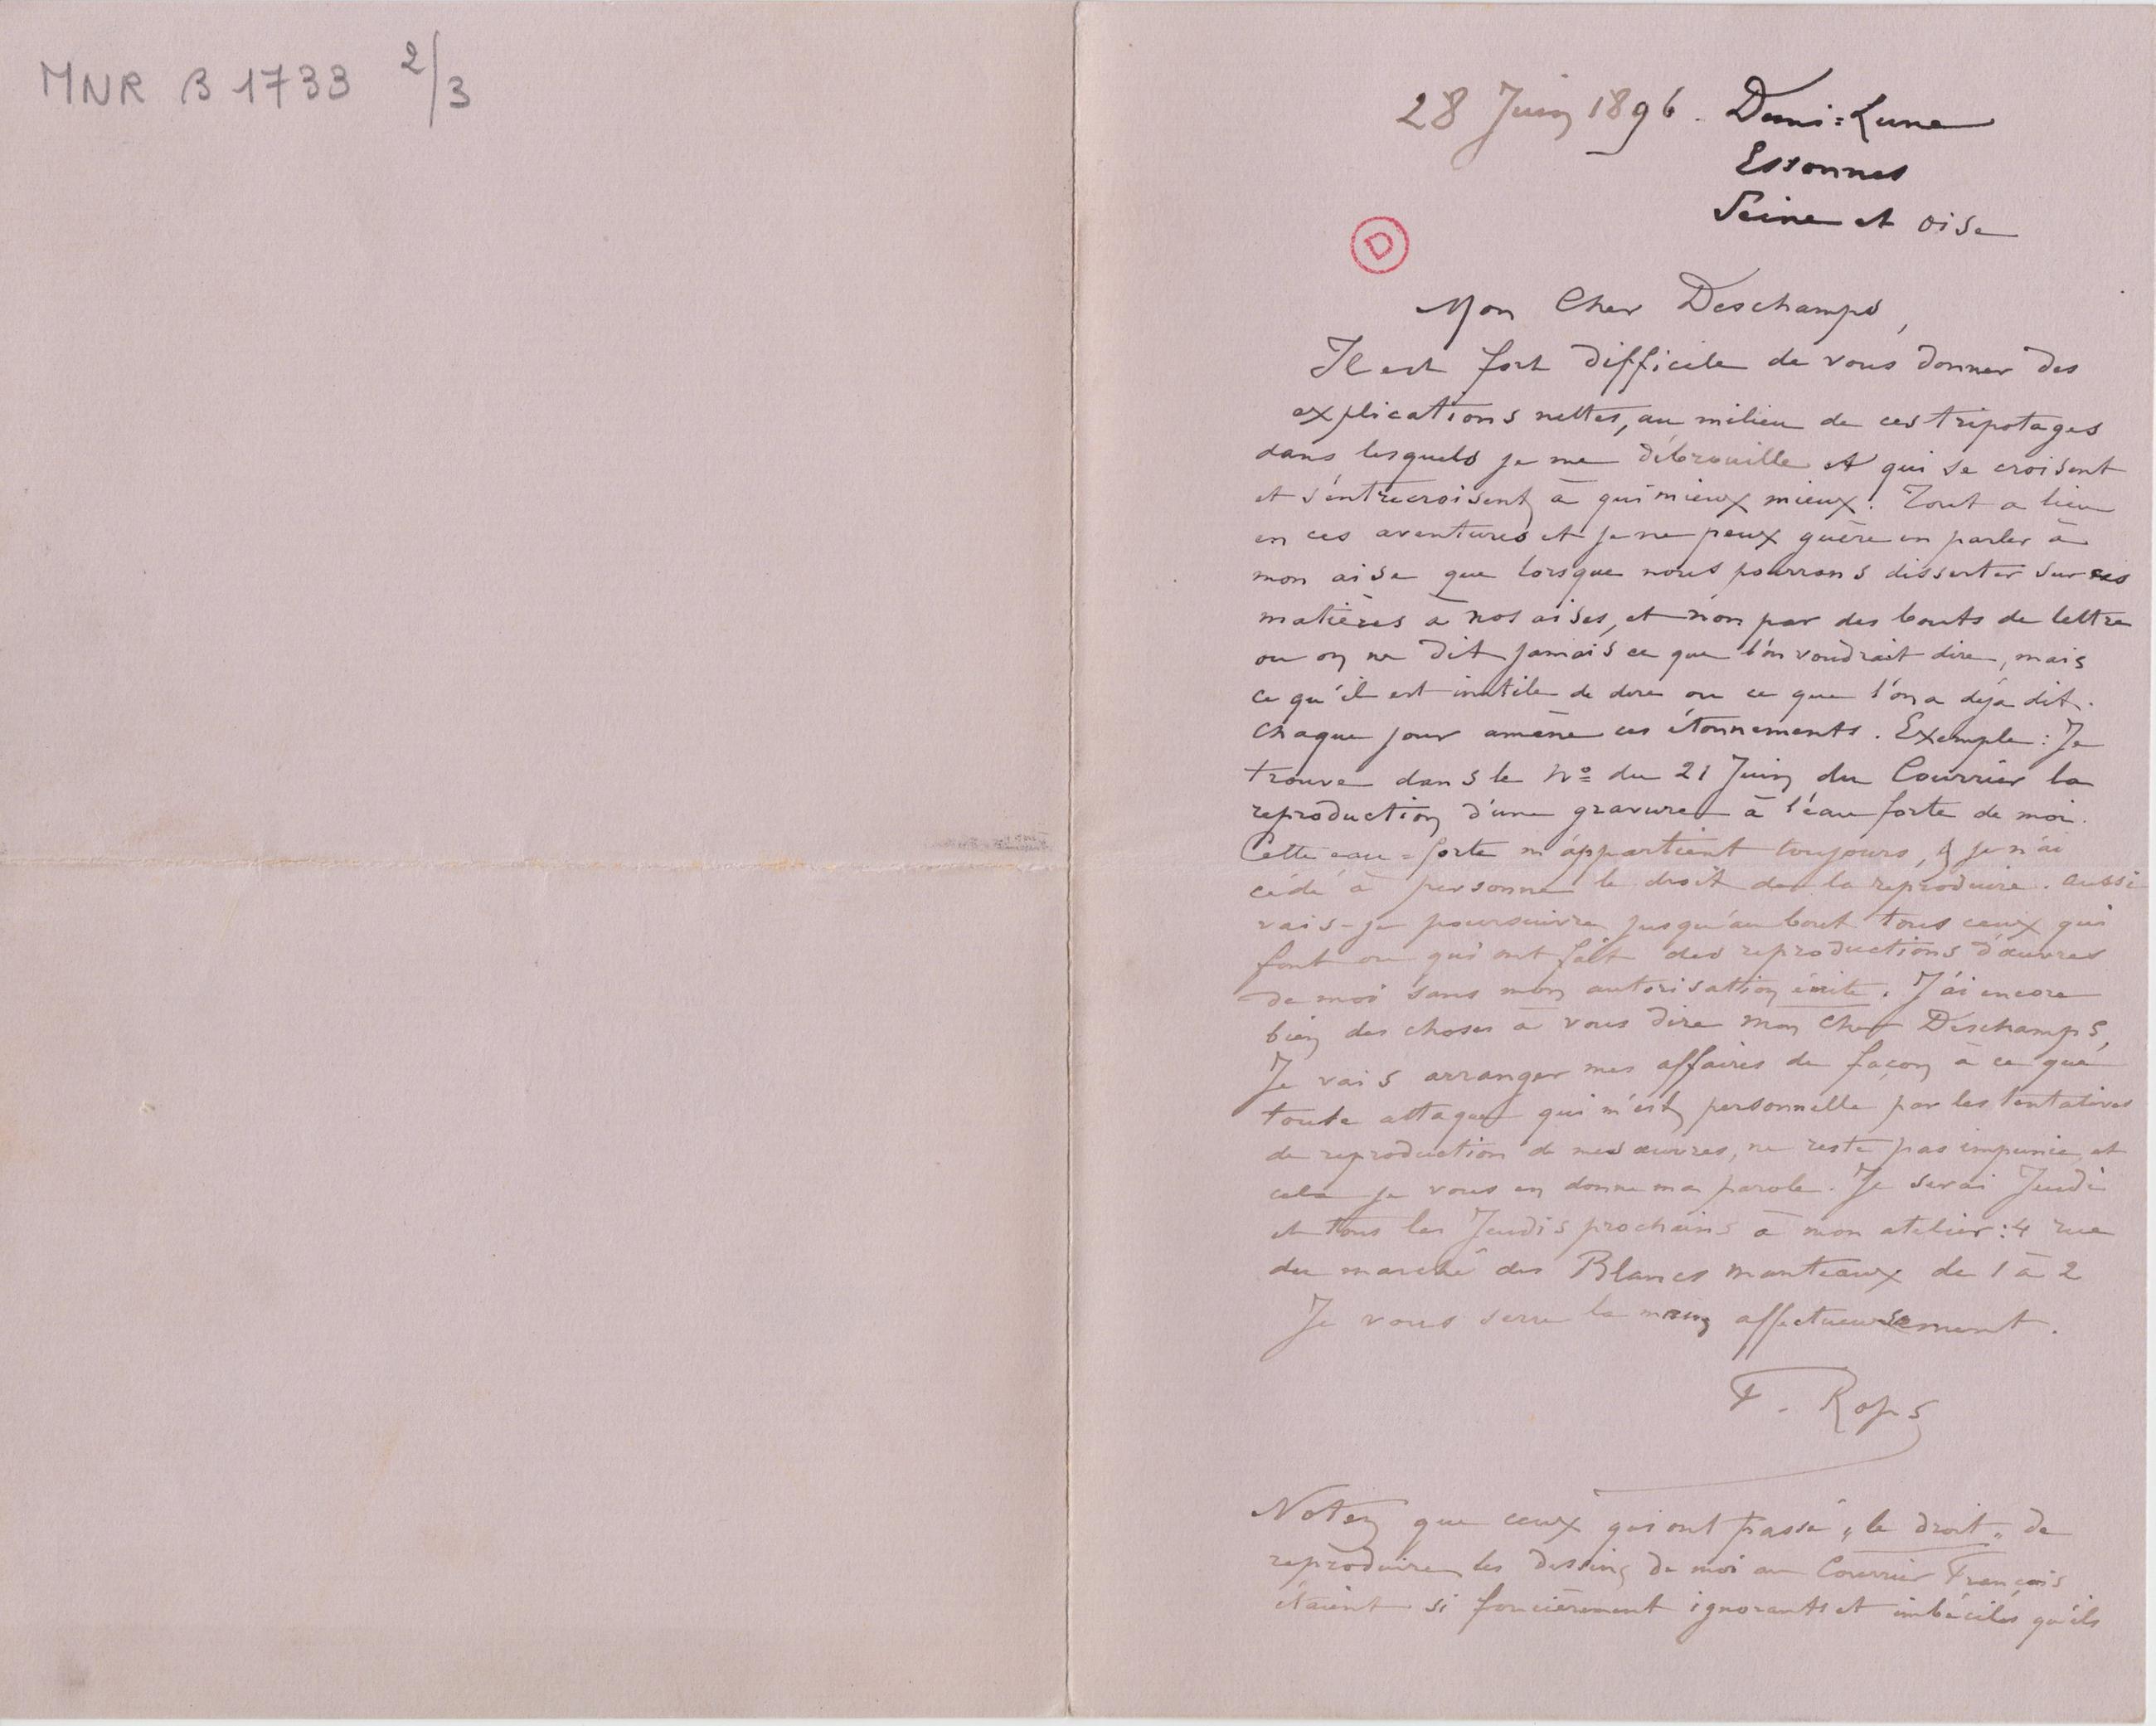 MNR B 1733 2/3
28 Juin 1896. Demi=Lune
Essonnes
Seine et Oise
D
Mon Cher Deschamps,
Il est fort difficile de vous donner des
explications nettes, au milieu de ces tripotages
dans lesquels je me débrouille et qui se croisent
et s'entrecroisent à qui mieux mieux. Tout a lieu
en ces aventures, et je ne peux guère en parler à
mon aise que lorsque nous pourrons disserter sur ces
matières à nos aises, et non par des bouts de lettre
ou on ne dit jamais ce que l'on voudrait dire, mais
ce qu'il est inutile de dire ou ce que l'on a déja dit.
Chaque jour amène ces étonnements. Exemple : Je
trouve dans le No du 21 Juin du Courrier la
reproduction d'une gravure à l'eau forte de moi.
Cette eau=forte m'appartient toujours, & je n'ai
cédé à personne le droit de la reproduire. Aussi
vais-je poursuivre jusqu'au bout tous ceux qui
font ou qui ont fait des reproductions d'œuvres
de moi sans mon autorisation écrite. J'ai encore
bien des choses à vous dire mon Cher Deschamps,
Je vais arranger mes affaires de façon à ce que
toute attaque qui m'est personnelle par les tentatives
de reproduction de mes œuvres, ne reste pas impunie, et
cela je vous en donne ma parole. Je serai Jeudi
et tous les Jeudis prochains à mon atelier : 4 rue
du marché des Blancs manteaux de 1 à 2
Je vous serre la main affectueusement.
F. Rops
Notez que ceux qui ont passé „le droit„ de
reproduire les dessins de moi au Courrier Français
étaient si foncièrement ignorants et imbéciles qu'ils